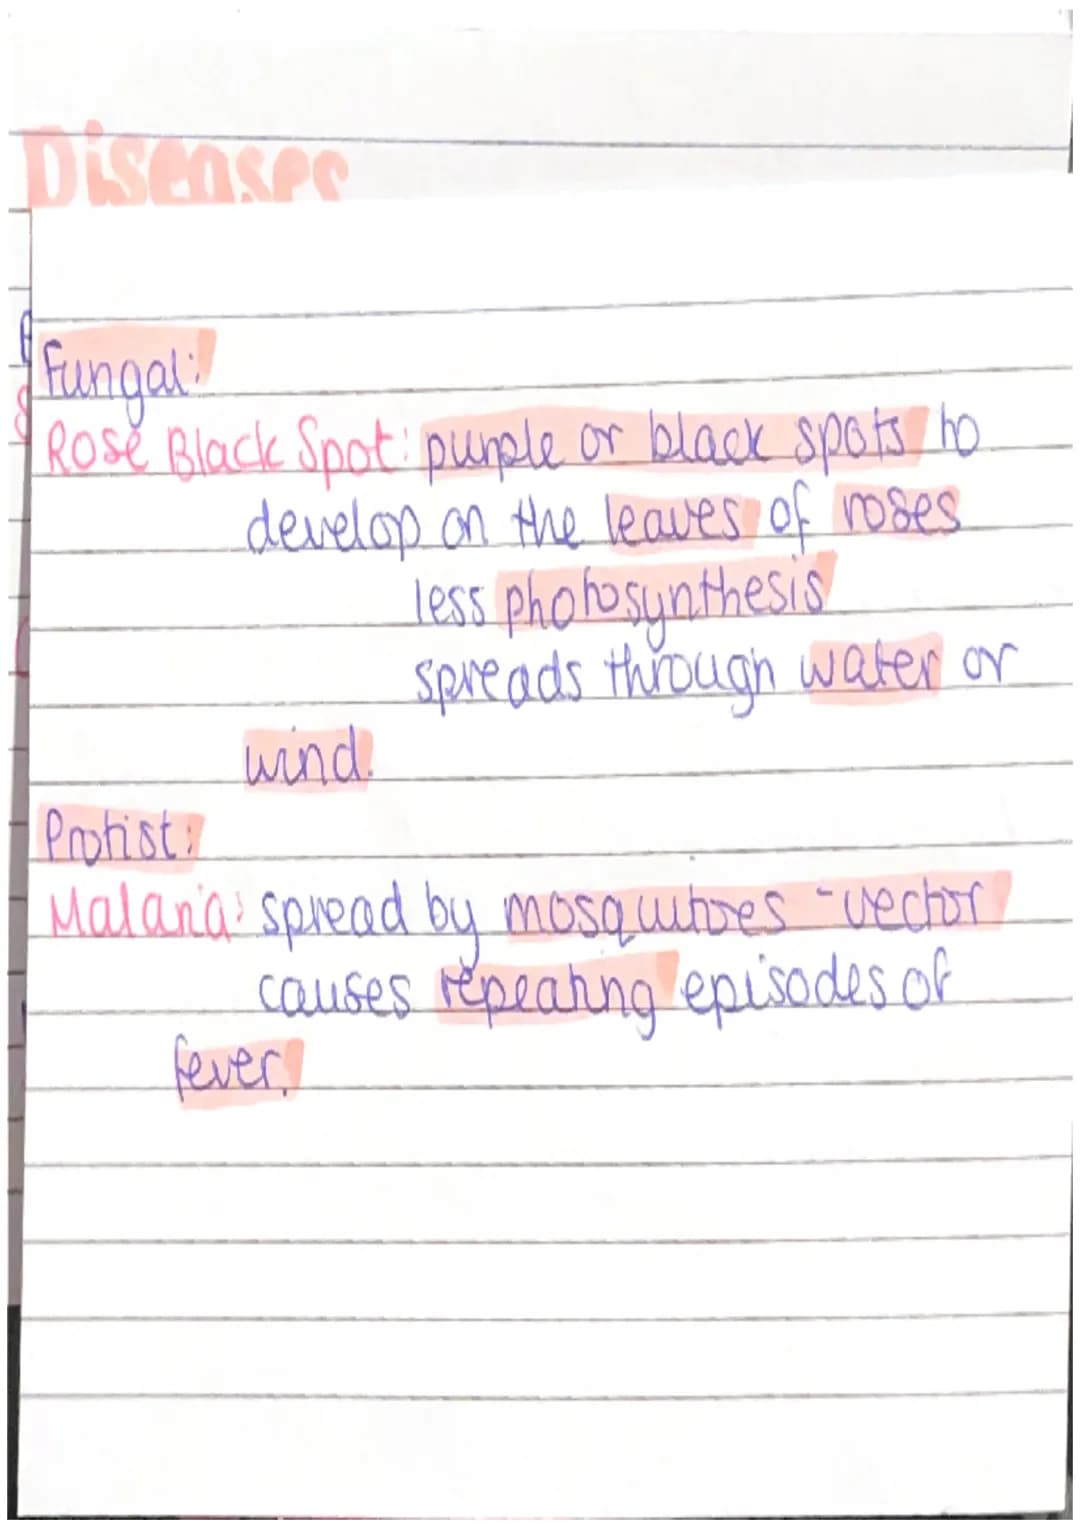 Diseases
Fungal:
Rose Black Spot: purple or black spots to
develop on the leaves of roses
less photosynthesis
spreads through water or
wind.
Protist:
Malaria: spread by mosquitoes - vector
causes repeating episodes of
fever.